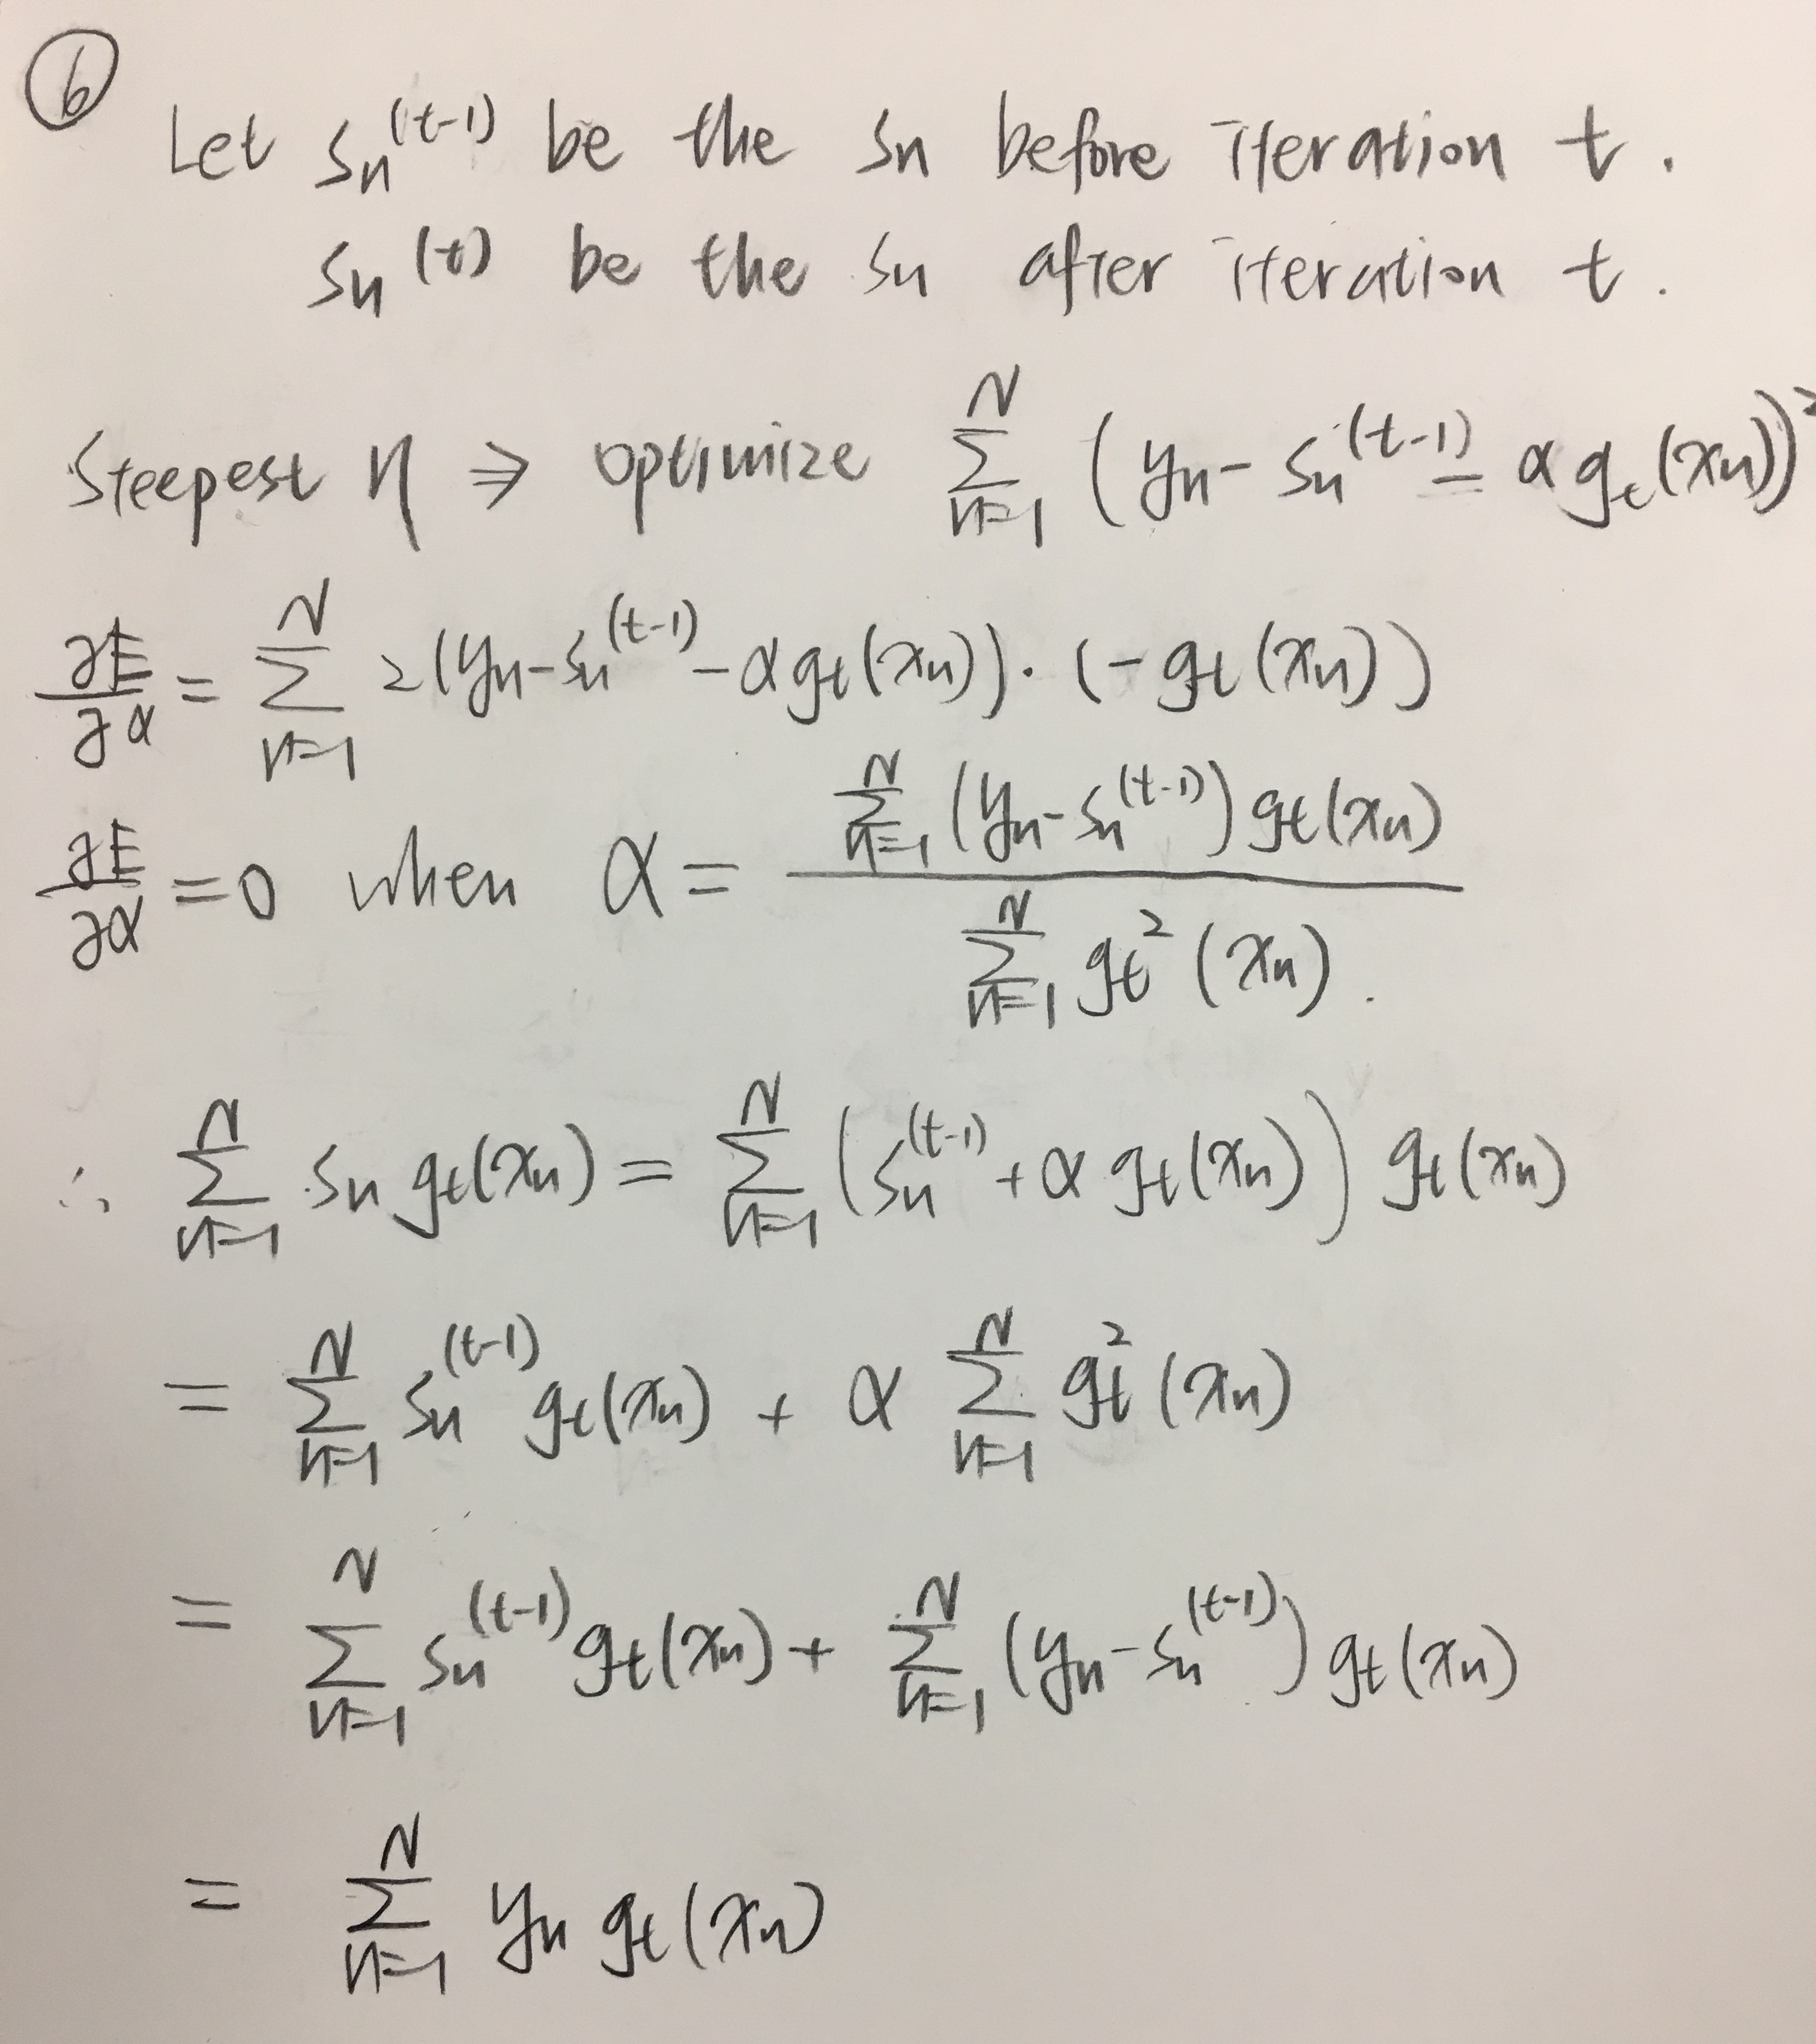 ⑥
Let Sn^(t-1) be the Sn before iteration t.
Sn^(t) be the Sn after iteration t.
Steepest η ⇒ optimize ∑_{n=1}^{N} (yn - Sn^(t-1) - αgt(xn))²
∂E/∂α = ∑_{n=1}^{N} 2(yn - Sn^(t-1) - αgt(xn)) · (-gt(xn))
∂E/∂α = 0 when α = ∑_{n=1}^{N} (yn - Sn^(t-1)) gt(xn) / ∑_{n=1}^{N} gt²(xn).
∴ ∑_{n=1}^{N} Sn gt(xn) = ∑_{n=1}^{N} (Sn^(t-1) + αgt(xn)) gt(xn)
= ∑_{n=1}^{N} Sn^(t-1) gt(xn) + α ∑_{n=1}^{N} gt²(xn)
= ∑_{n=1}^{N} Sn^(t-1) gt(xn) + ∑_{n=1}^{N} (yn - Sn^(t-1)) gt(xn)
= ∑_{n=1}^{N} yn gt(xn)